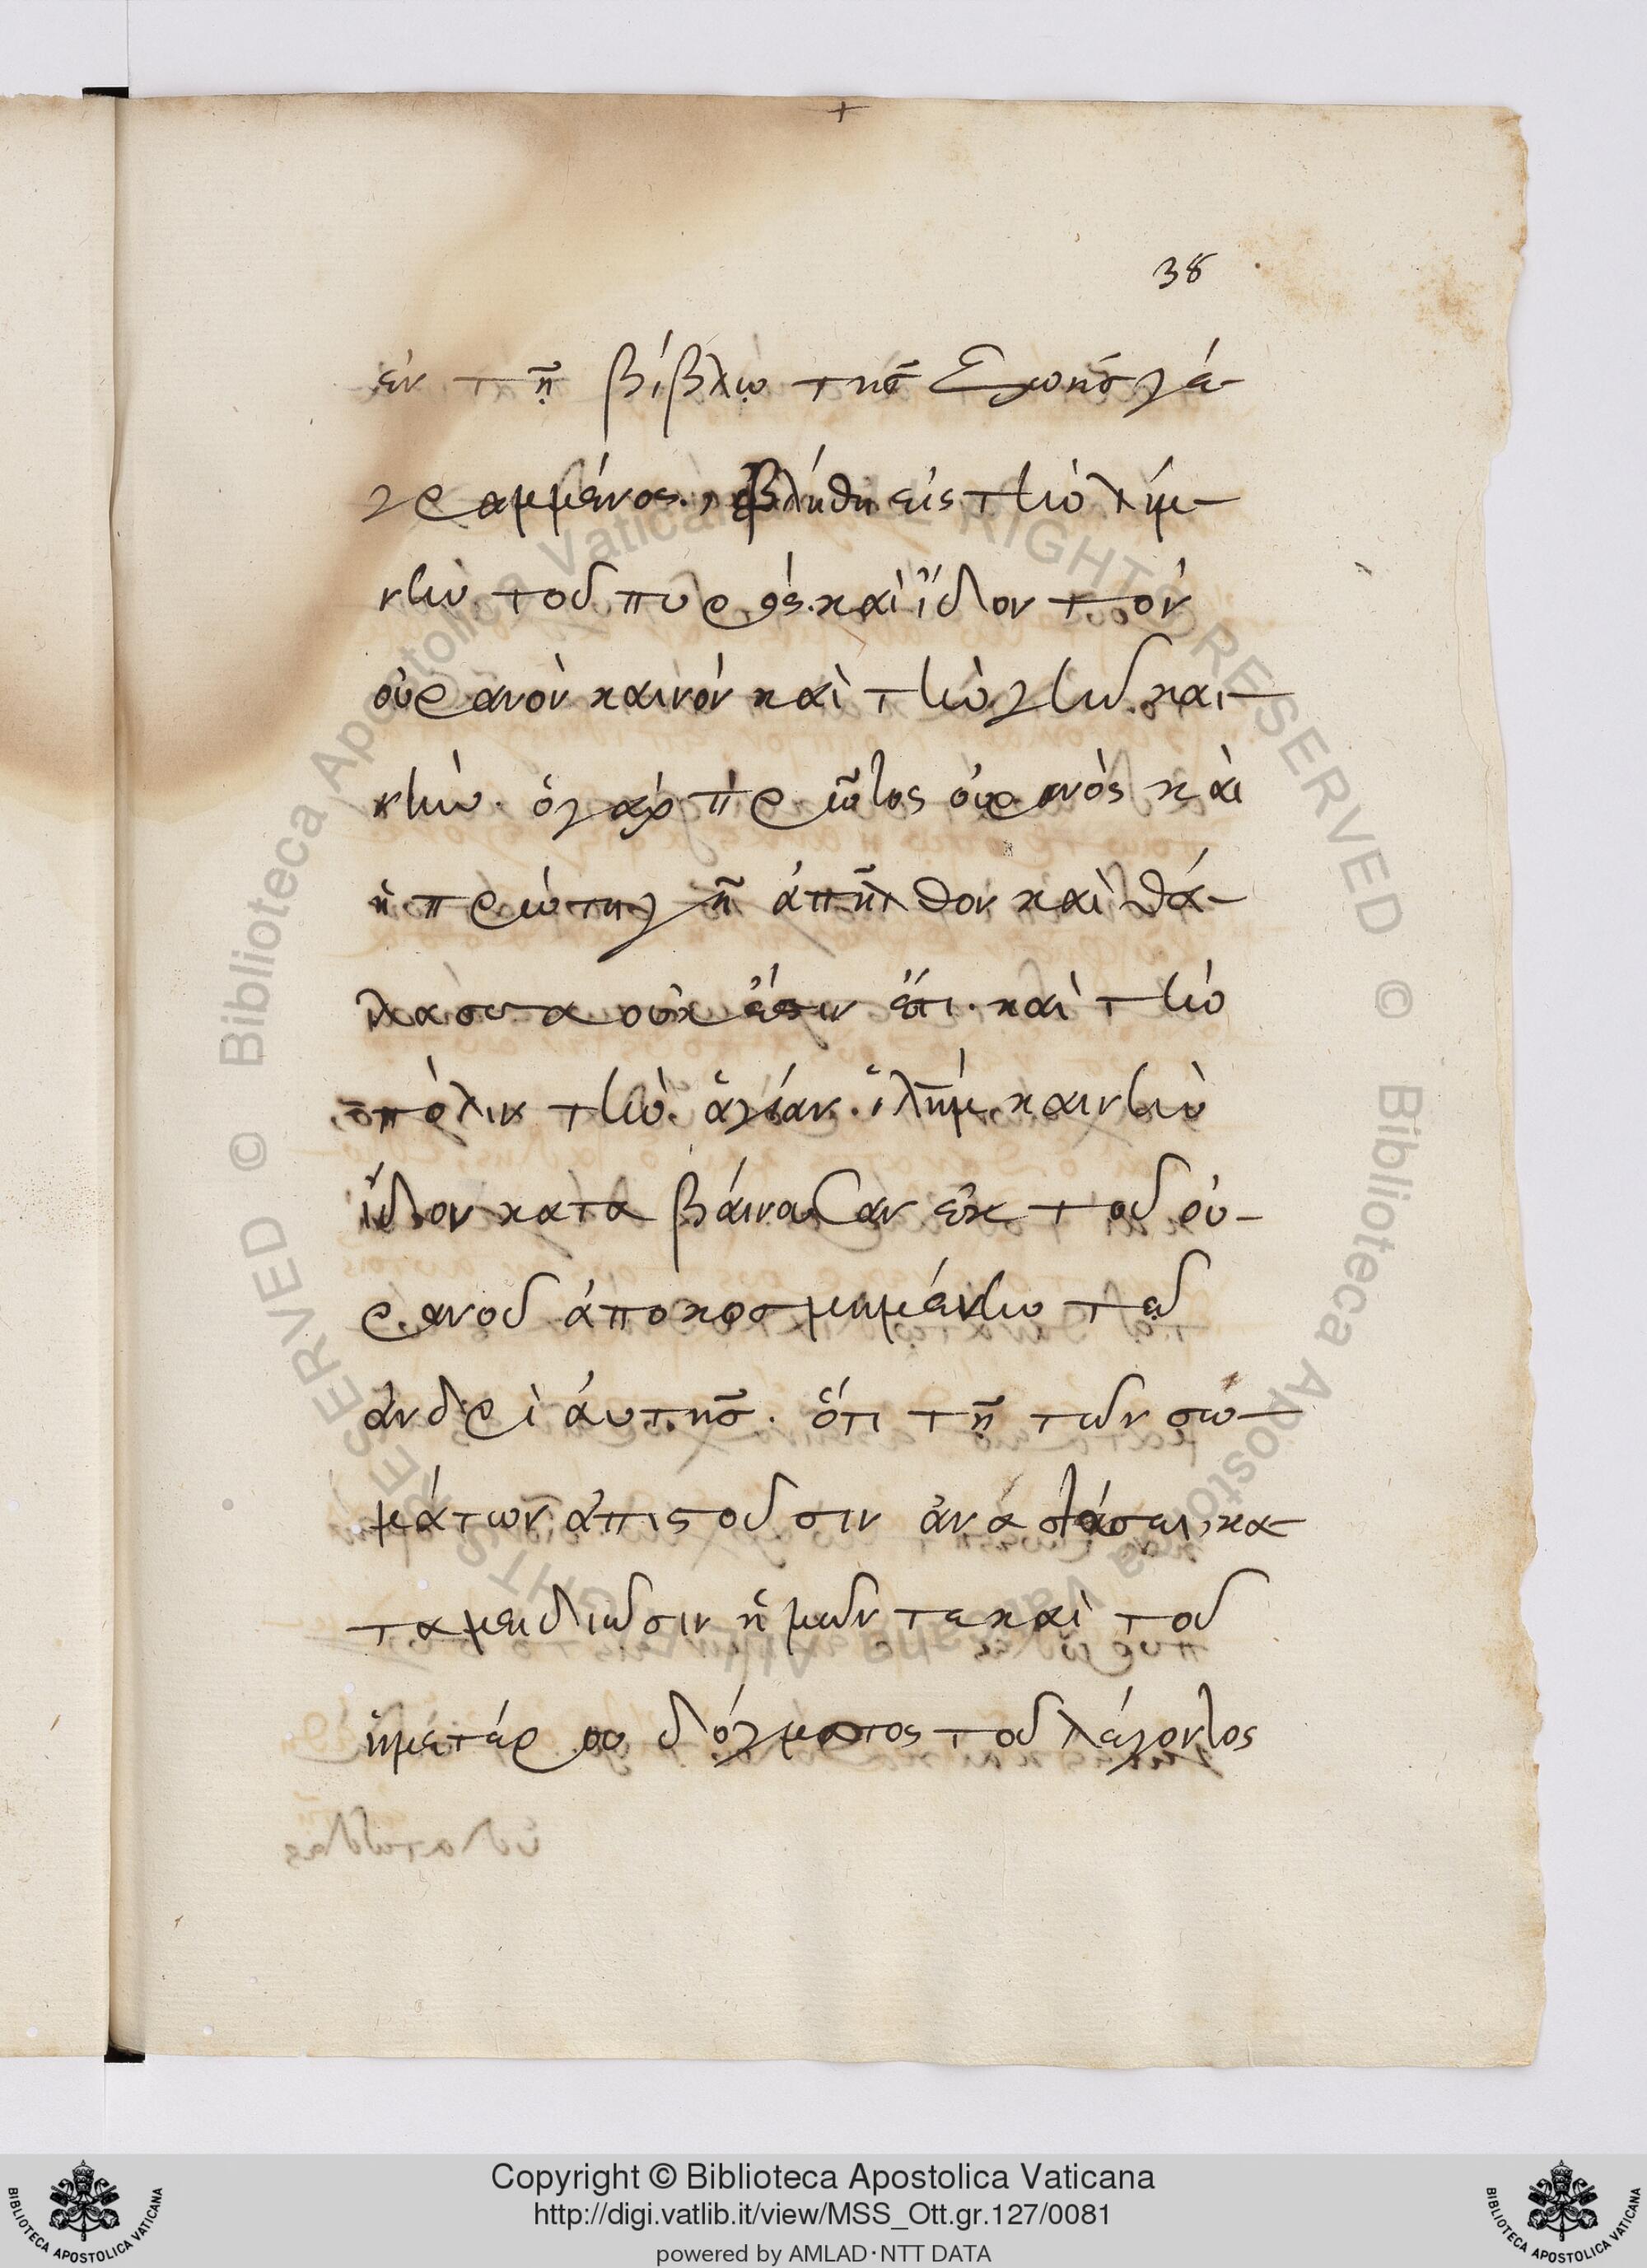 38
ἐν τῇ βίβλῳ τῆς ζωῆς γε-
γραμμένος, ἐβλήθη εἰς τὴν λίμ-
νην τοῦ πυρός. καὶ ἴδον τὸν
οὐρανὸν καινὸν καὶ τὴν γῆν και-
νήν. ὁ γὰρ πρῶτος οὐρανὸς καὶ
ἡ πρώτη γῆ ἀπῆλθον καὶ θά-
λασσα οὐκ ἔστιν ἔτι. καὶ τὴν
πόλιν τὴν ἁγίαν. ἱλὴμ καινὴν
ἴδον κατα βαίνουσαν ἐκ τοῦ οὐ-
ρανοῦ ἀποκοσμημένην τῷ
ἀνδρὶ ἀυτῆς. ὅτι τῇ τῶν σω-
μάτων ἀπιστοῦσιν ἀναστάσει, κα-
ταμειδιῶσιν ἡμῶν τε καὶ τοῦ
ἡμετέρου δόγματος τοῦ λέγοντος
Copyright © Biblioteca Apostolica Vaticana
http://digi.vatlib.it/view/MSS_Ott.gr.127/0081
powered by AMLAD·NTT DATA
BIBLIOTECA APOSTOLICA VATICANA
BIBLIOTECA APOSTOLICA VATICANA